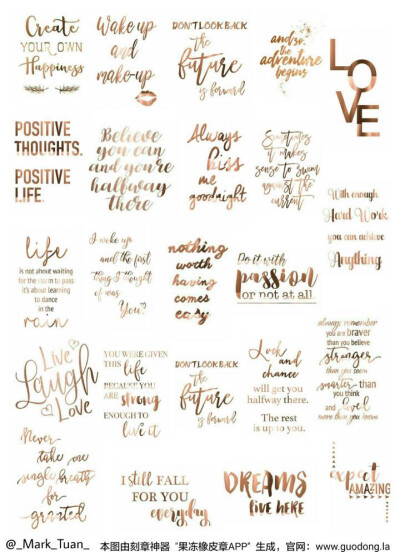 Create
YOUR OWN
Happiness
Wake up
and
make-up
DON'T LOOK BACK
the
future
is forward
and so,
the
adventure
begins
LOVE
POSITIVE
THOUGHTS.
POSITIVE
LIFE.
Believe
you can
and you're
halfway
there
Always
kiss
me
goodnight
Sometimes
it makes
sense to swim
against the
current
With enough
Hard Work
you can achieve
Anything
life
IS NOT ABOUT WAITING
FOR THE STORM TO PASS
IT'S ABOUT LEARNING
TO DANCE
IN THE
rain
I woke up
and the first
thing I thought
of was
You?
nothing
worth
having
comes
easy
Do it with
passion
or not at all
Live
Laugh
Love
YOU WERE GIVEN
THIS life
BECAUSE YOU
ARE strong
ENOUGH TO
live it
DON'T LOOK BACK
the
future
is forward
Luck
and
chance
will get you
halfway there.
The rest
is up to you.
always remember
you are braver
than you believe
stronger
than you seem
smarter than
you think
and loved
more than you know
Never
take one
single breath
for
granted
I still FALL
FOR YOU
everyday
DREAMS
live HERE
expect
AMAZING
@_Mark_Tuan_ 本图由刻章神器 "果冻橡皮章APP" 生成，官网：www.guodong.la